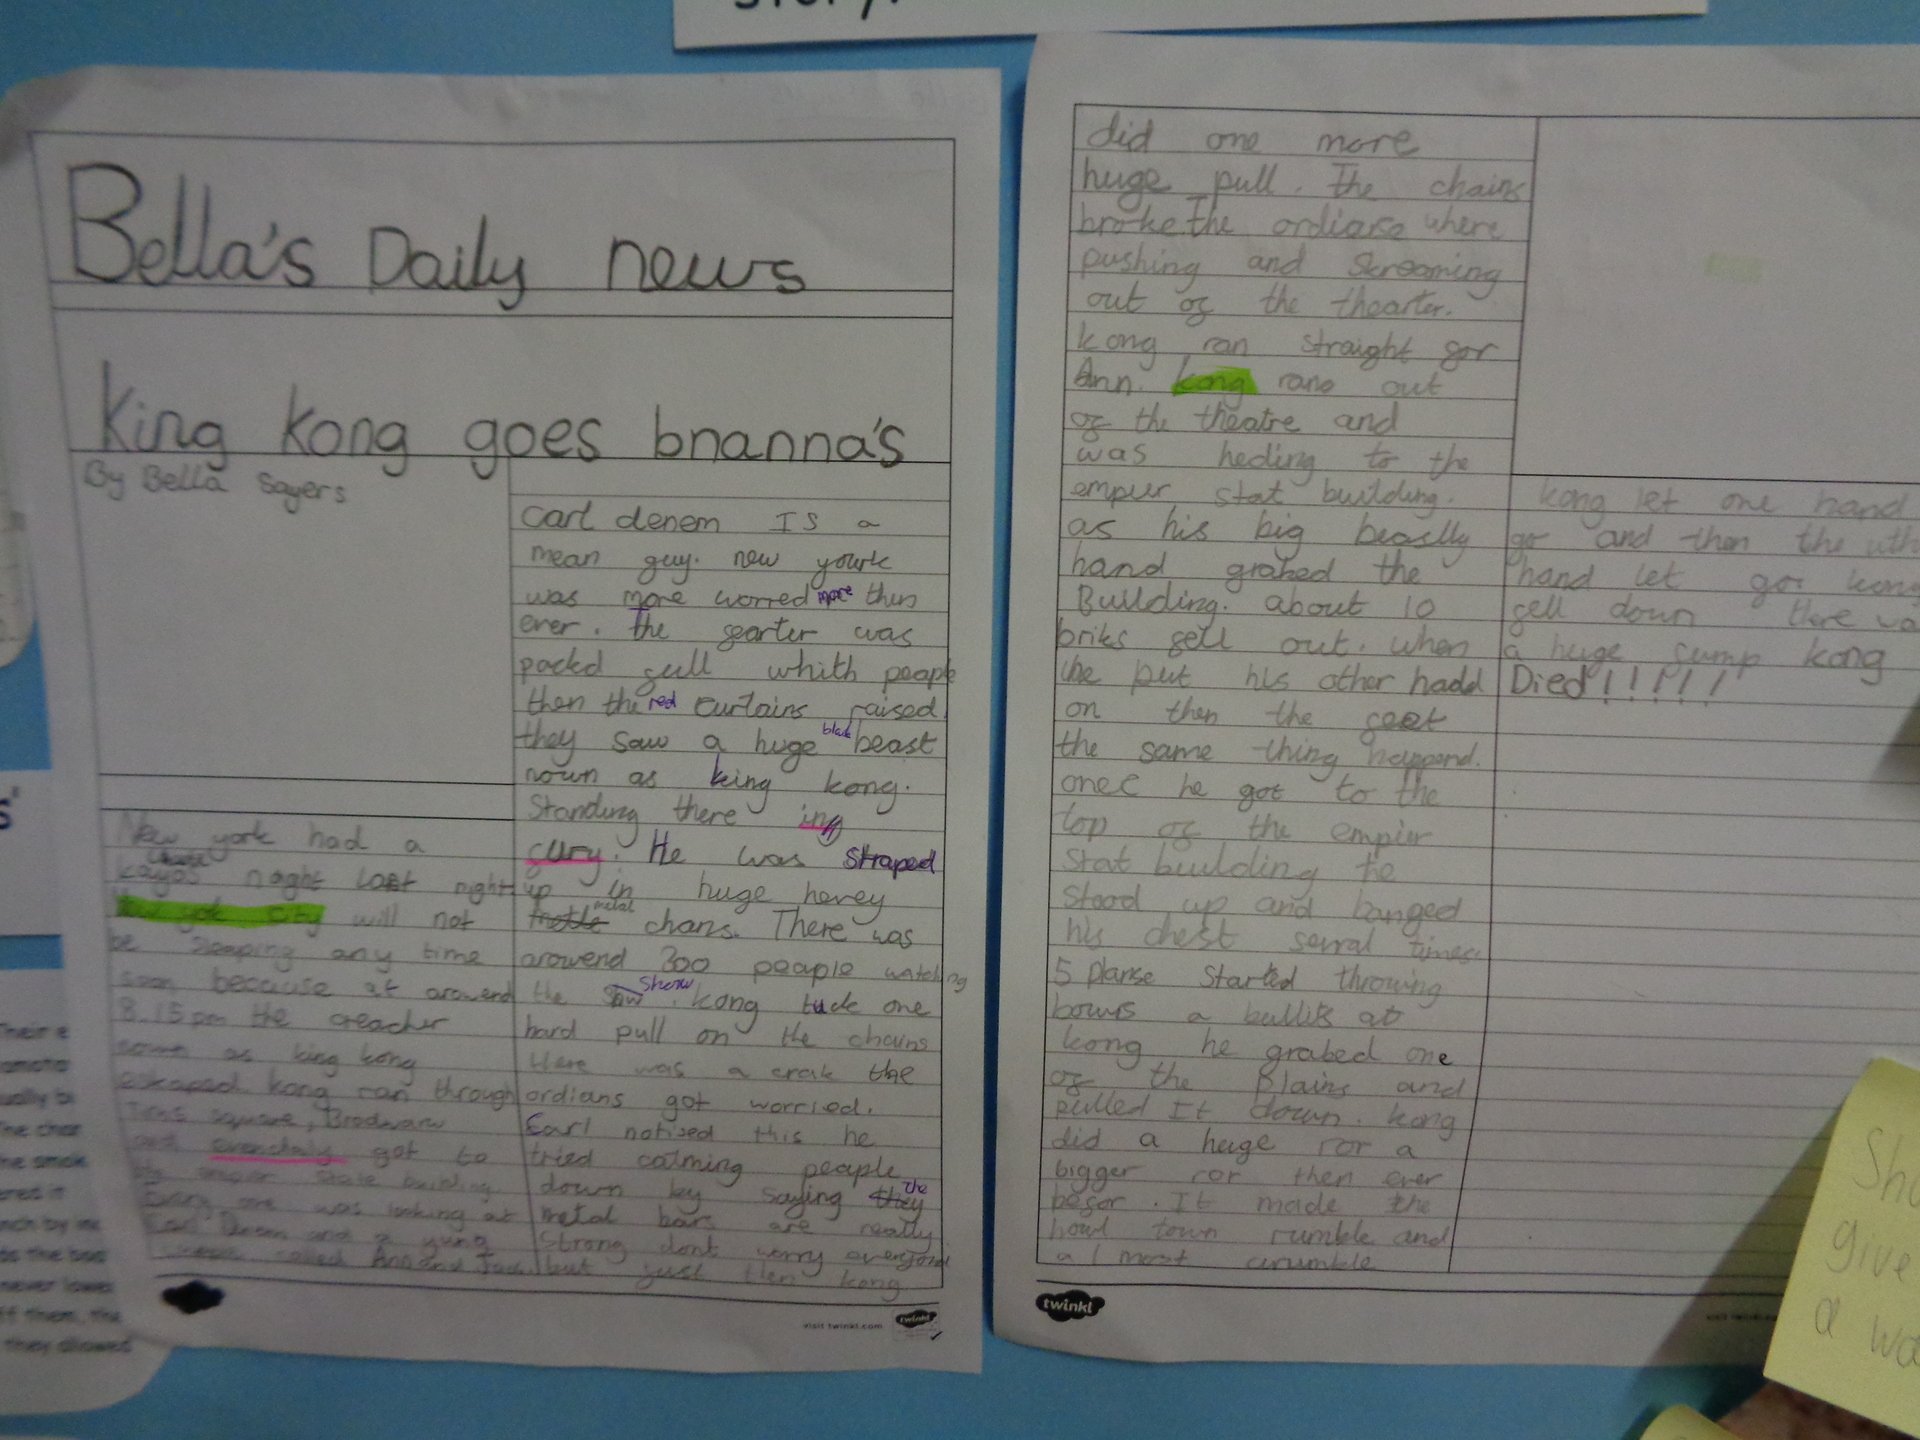 story.
Bella's Daily news
king kong goes bnanna's
By Bella Sayers
New york had a
kayos naght last night
New yok city will not
be sleeping any time
soon because at arowend
8.15pm the creacher
nown as king kong
eskaped kong ran through
Tims square, Brodwaw
and evenchaly got to
the empier state building
Every one was looking at
Carl Denem and a yung
called Ann and Jack
carl denem Is a
mean guy. new yourk
was more worred more then
ever. The gearter was
packd gull whith peaple
then the red curtains raised
they saw a huge black beast
nown as king kong.
Standing there in
gury. He was straped
up in huge hevey
metal chans. There was
arowend 300 peaple watching
the show. kong tuck one
hard pull on the chains
there was a crak the
ordians got worried.
Carl notised this he
tried calming peaple
down by saying the
metal bars are really
strong dont worry everyone
but just then kong
visit twinkl.com
twinkl
did one more
huge pull. The chains
broke The ordiarse where
pushing and skreaming
out og the thearter.
kong ran straight gor
Ann. kong rano out
og the theatre and
was heding to the
empier stat building.
as his big beaslly
hand grabed the
Building. about 10
briks gell out. when
he put his other hadd
on then the geet
the same thing happond.
onec he got to the
top og the empier
stat buulding he
stood up and banged
his chest serral times.
5 planse started throwing
bowms a bullits at
kong he grabed one
og the plains and
pulled it down. kong
did a huge ror a
bigger ror then ever
begor. It made the
howl town rumble and
almost crumble
twinkl
kong let one hand
go and then the uth
hand let go. kong
gell down there wa
a huge gump kong
Died!!!!!
Sho
give
a wo